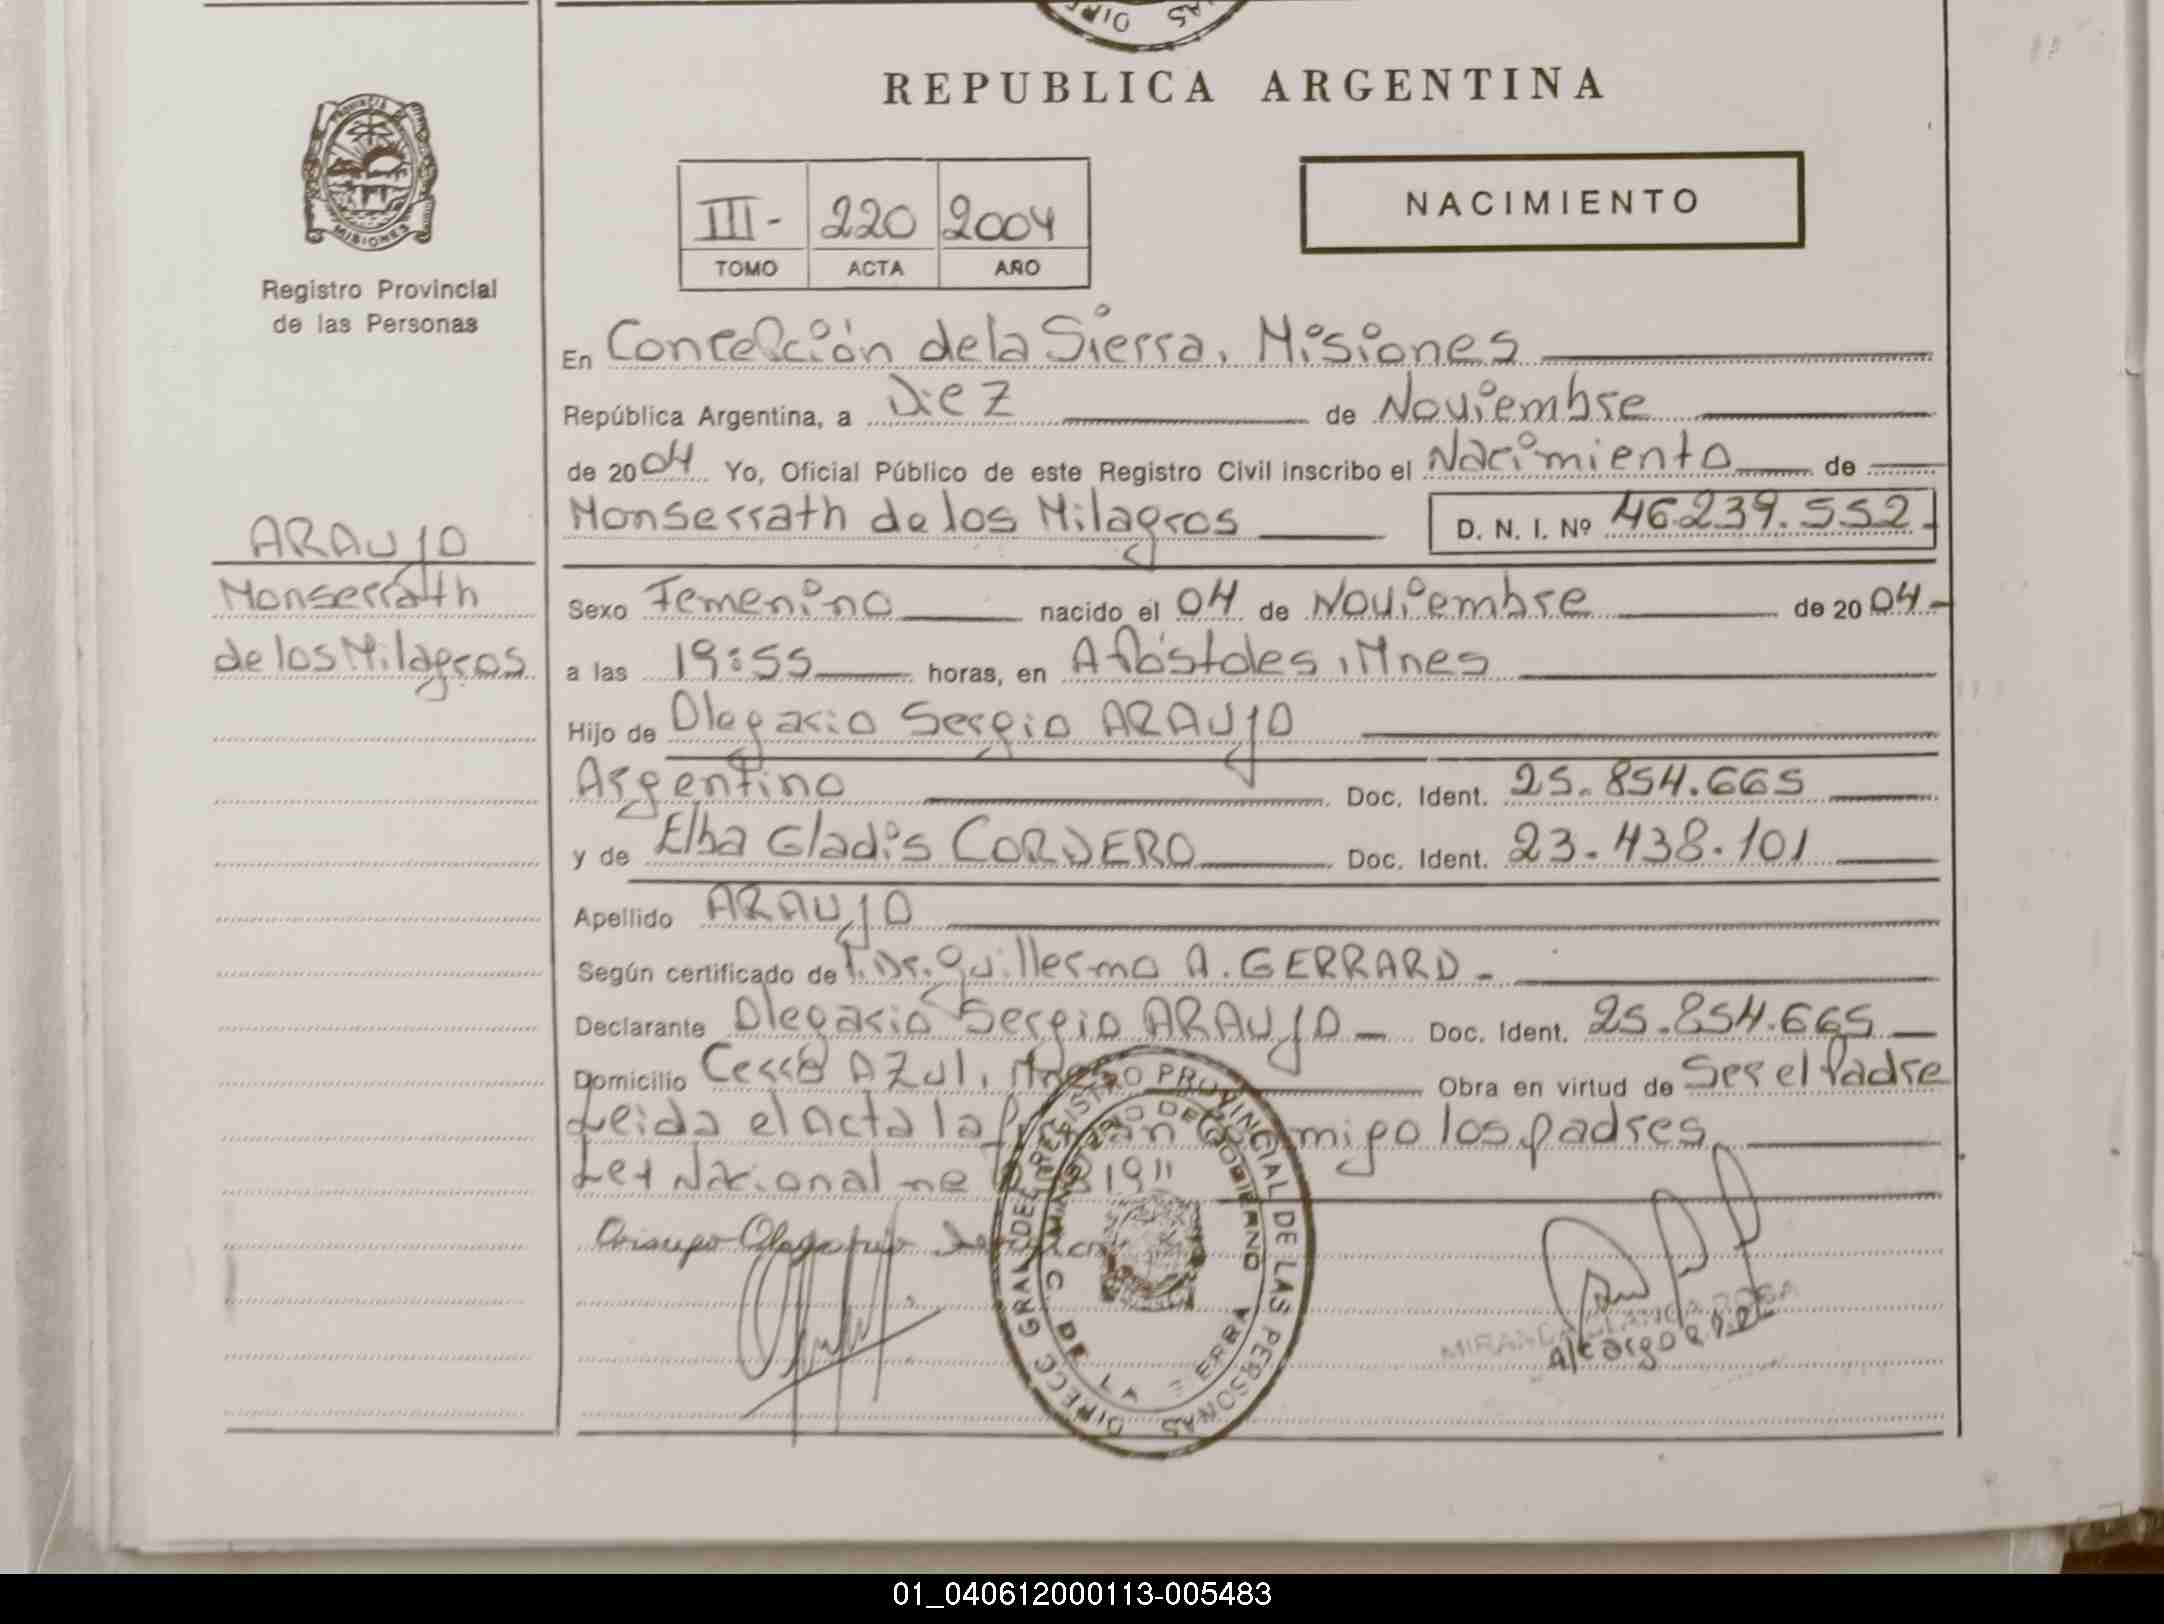 REPUBLICA ARGENTINA
PROVINCIA DE
MISIONES
Registro Provincial
de las Personas
III- 220 2004
TOMO ACTA AÑO
NACIMIENTO
En Concepción de la Sierra, Misiones
República Argentina, a Diez de Noviembre
de 2004 Yo, Oficial Público de este Registro Civil inscribo el Nacimiento de
Monserrath de los Milagros D. N. I. Nº 46.239.552.
ARAUJO
Monserrath
de los Milagros
Sexo Femenino nacido el 04 de Noviembre de 2004
a las 19:55 horas, en Apóstoles, Mnes
Hijo de Olegario Sergio ARAUJO
Argentino Doc. Ident. 25.854.665
y de Elba Gladis CORDERO Doc. Ident. 23.438.101
Apellido ARAUJO
Según certificado de Dr. Guillermo A. GERRARD
Declarante Olegario Sergio ARAUJO Doc. Ident. 25.854.665
Domicilio Cerro Azul, Mnes Obra en virtud de Ser el Padre
Leida el Acta la los padres
Ley Nacional
DIRECC GRAL DEL REGISTRO PROVINCIAL DE LAS PERSONAS
MINISTERIO DE GOBIERNO
C DE LA
Araujo Olegario
01_040612000113-005483